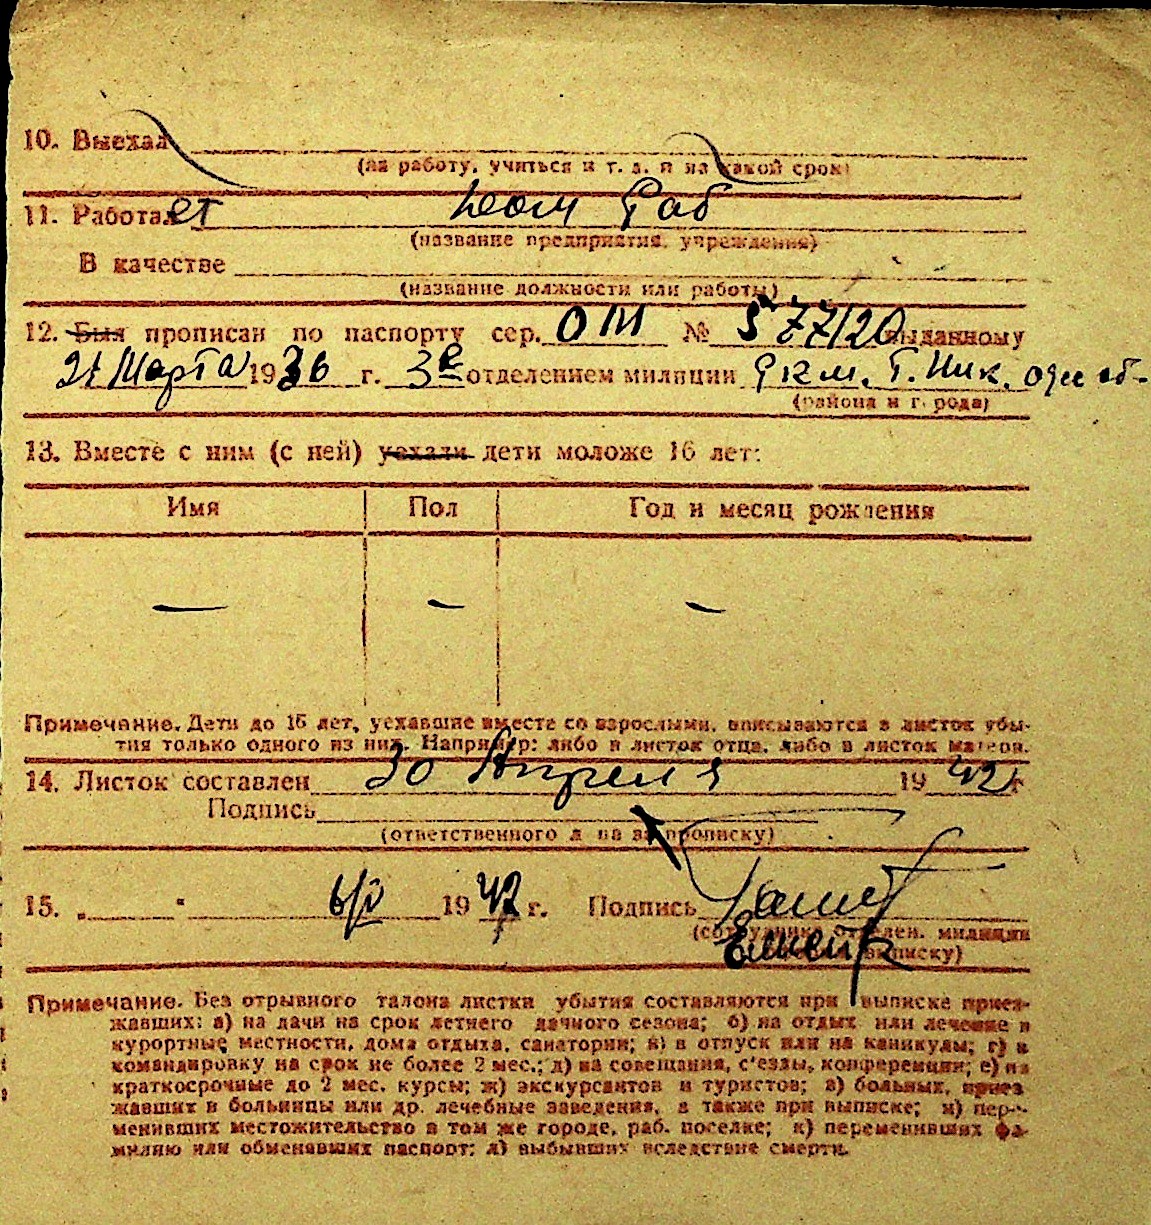 10. Выехал
(на работу, учиться и т. д. и на какой срок)
11. Работает
(название предприятия, учреждения)
В качестве
(название должности или работы)
12. Был прописан по паспорту сер. № 577120 выданному
21 Марта 1936 г. 3е отделением милиции
(района и города)
13. Вместе с ним (с ней) уехали дети моложе 16 лет:
Имя Пол Год и месяц рождения
— — —
Примечание. Дети до 16 лет, уехавшие вместе со взрослыми, вписываются в листок убы-
тия только одного из них. Например: либо в листок отца, либо в листок матери.
14. Листок составлен 30 Апреля 1942 г
Подпись
(ответственного л на за прописку)
15. „ “ 1942 г. Подпись
(сотрудника отделен. милиции
выписку)
Примечание. Без отрывного талона листки убытия составляются при выписке приез-
жавших: а) на дачи на срок летнего дачного сезона; б) на отдых или лечение в
курортные местности, дома отдыха, санатории; в) в отпуск или на каникулы; г) в
командировку на срок не более 2 мес.; д) на совещания, с'езды, конференции; е) на
краткосрочные до 2 мес. курсы; ж) экскурсантов и туристов; з) больных, приез
жавших в больницы или др. лечебные заведения, а также при выписке; и) пере-
менивших местожительство в том же городе, раб. поселке; к) переменивших фа-
милию или обменявших паспорт; л) выбывших вследствие смерти.